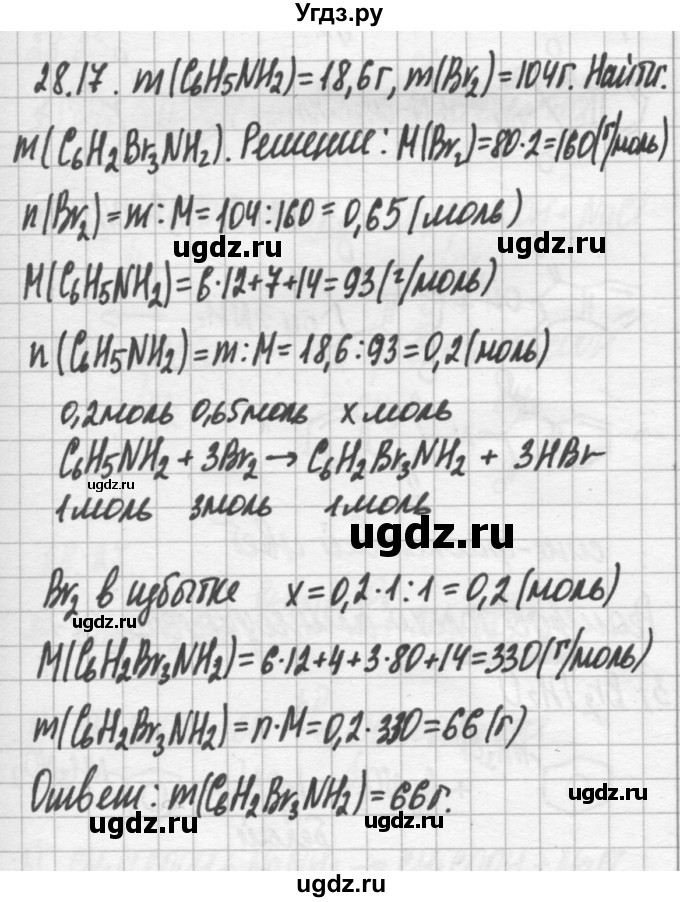 Угдз.ру
28.17. m(C6H5NH2)=18,6г, m(Br2)=104г. Найти:
m(C6H2Br3NH2). Решение: M(Br2)=80·2=160(г/моль)
n(Br2)=m:M=104:160=0,65(моль)
ugdz.ru ugdz.ru
M(C6H5NH2)=6·12+7+14=93(г/моль)
n(C6H5NH2)=m:M=18,6:93=0,2(моль)
0,2моль 0,65моль x моль
C6H5NH2+3Br2→C6H2Br3NH2+3HBr
ugdz.ru
1моль 3моль 1моль
ugdz.ru
Br2 в избытке x=0,2·1:1=0,2(моль)
ugdz.ru
M(C6H2Br3NH2)=6·12+4+3·80+14=330(г/моль)
m(C6H2Br3NH2)=n·M=0,2·330=66(г)
Ответ: m(C6H2Br3NH2)=66г.
ugdz.ru ugdz.ru ugdz.ru
ugdz.ru